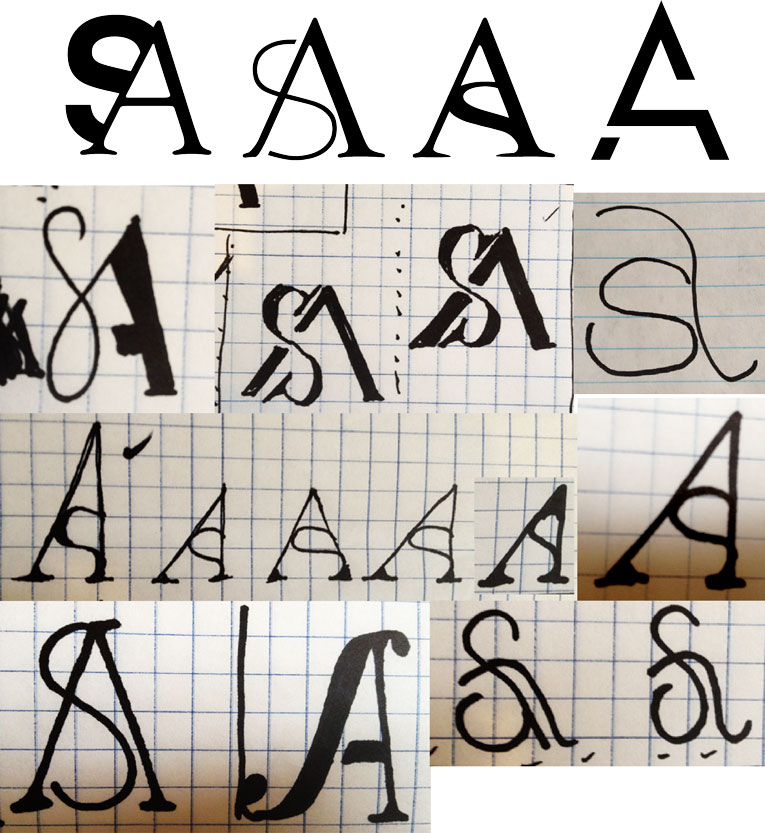 SA SA SA SA
SA SA SA Sa
SA SA SA SA SA SA
SA SA Sa Sa